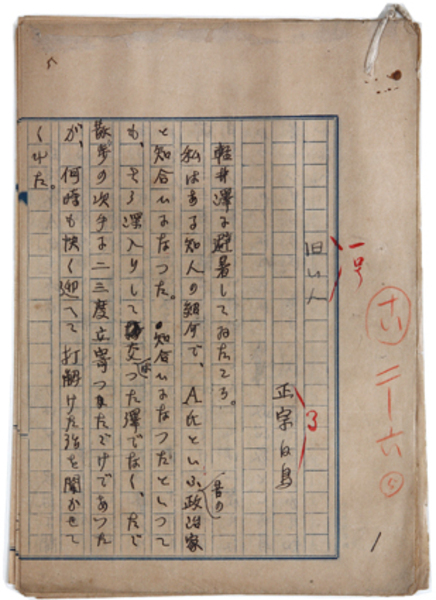 一号
旧い人
3
正宗白鳥
軽井澤に避暑してゐたころ。
私はある知人の紹介で、A氏といふ昔の政治家
と知合ひになつた。知合ひになつたといつて
も、さう深入りして交はつた譯でなく、たゞ
散歩の次手に二三度立寄つたゞけであつた
が、何時も快く迎へて打解けた話を聞かせて
くれた。
二ー六